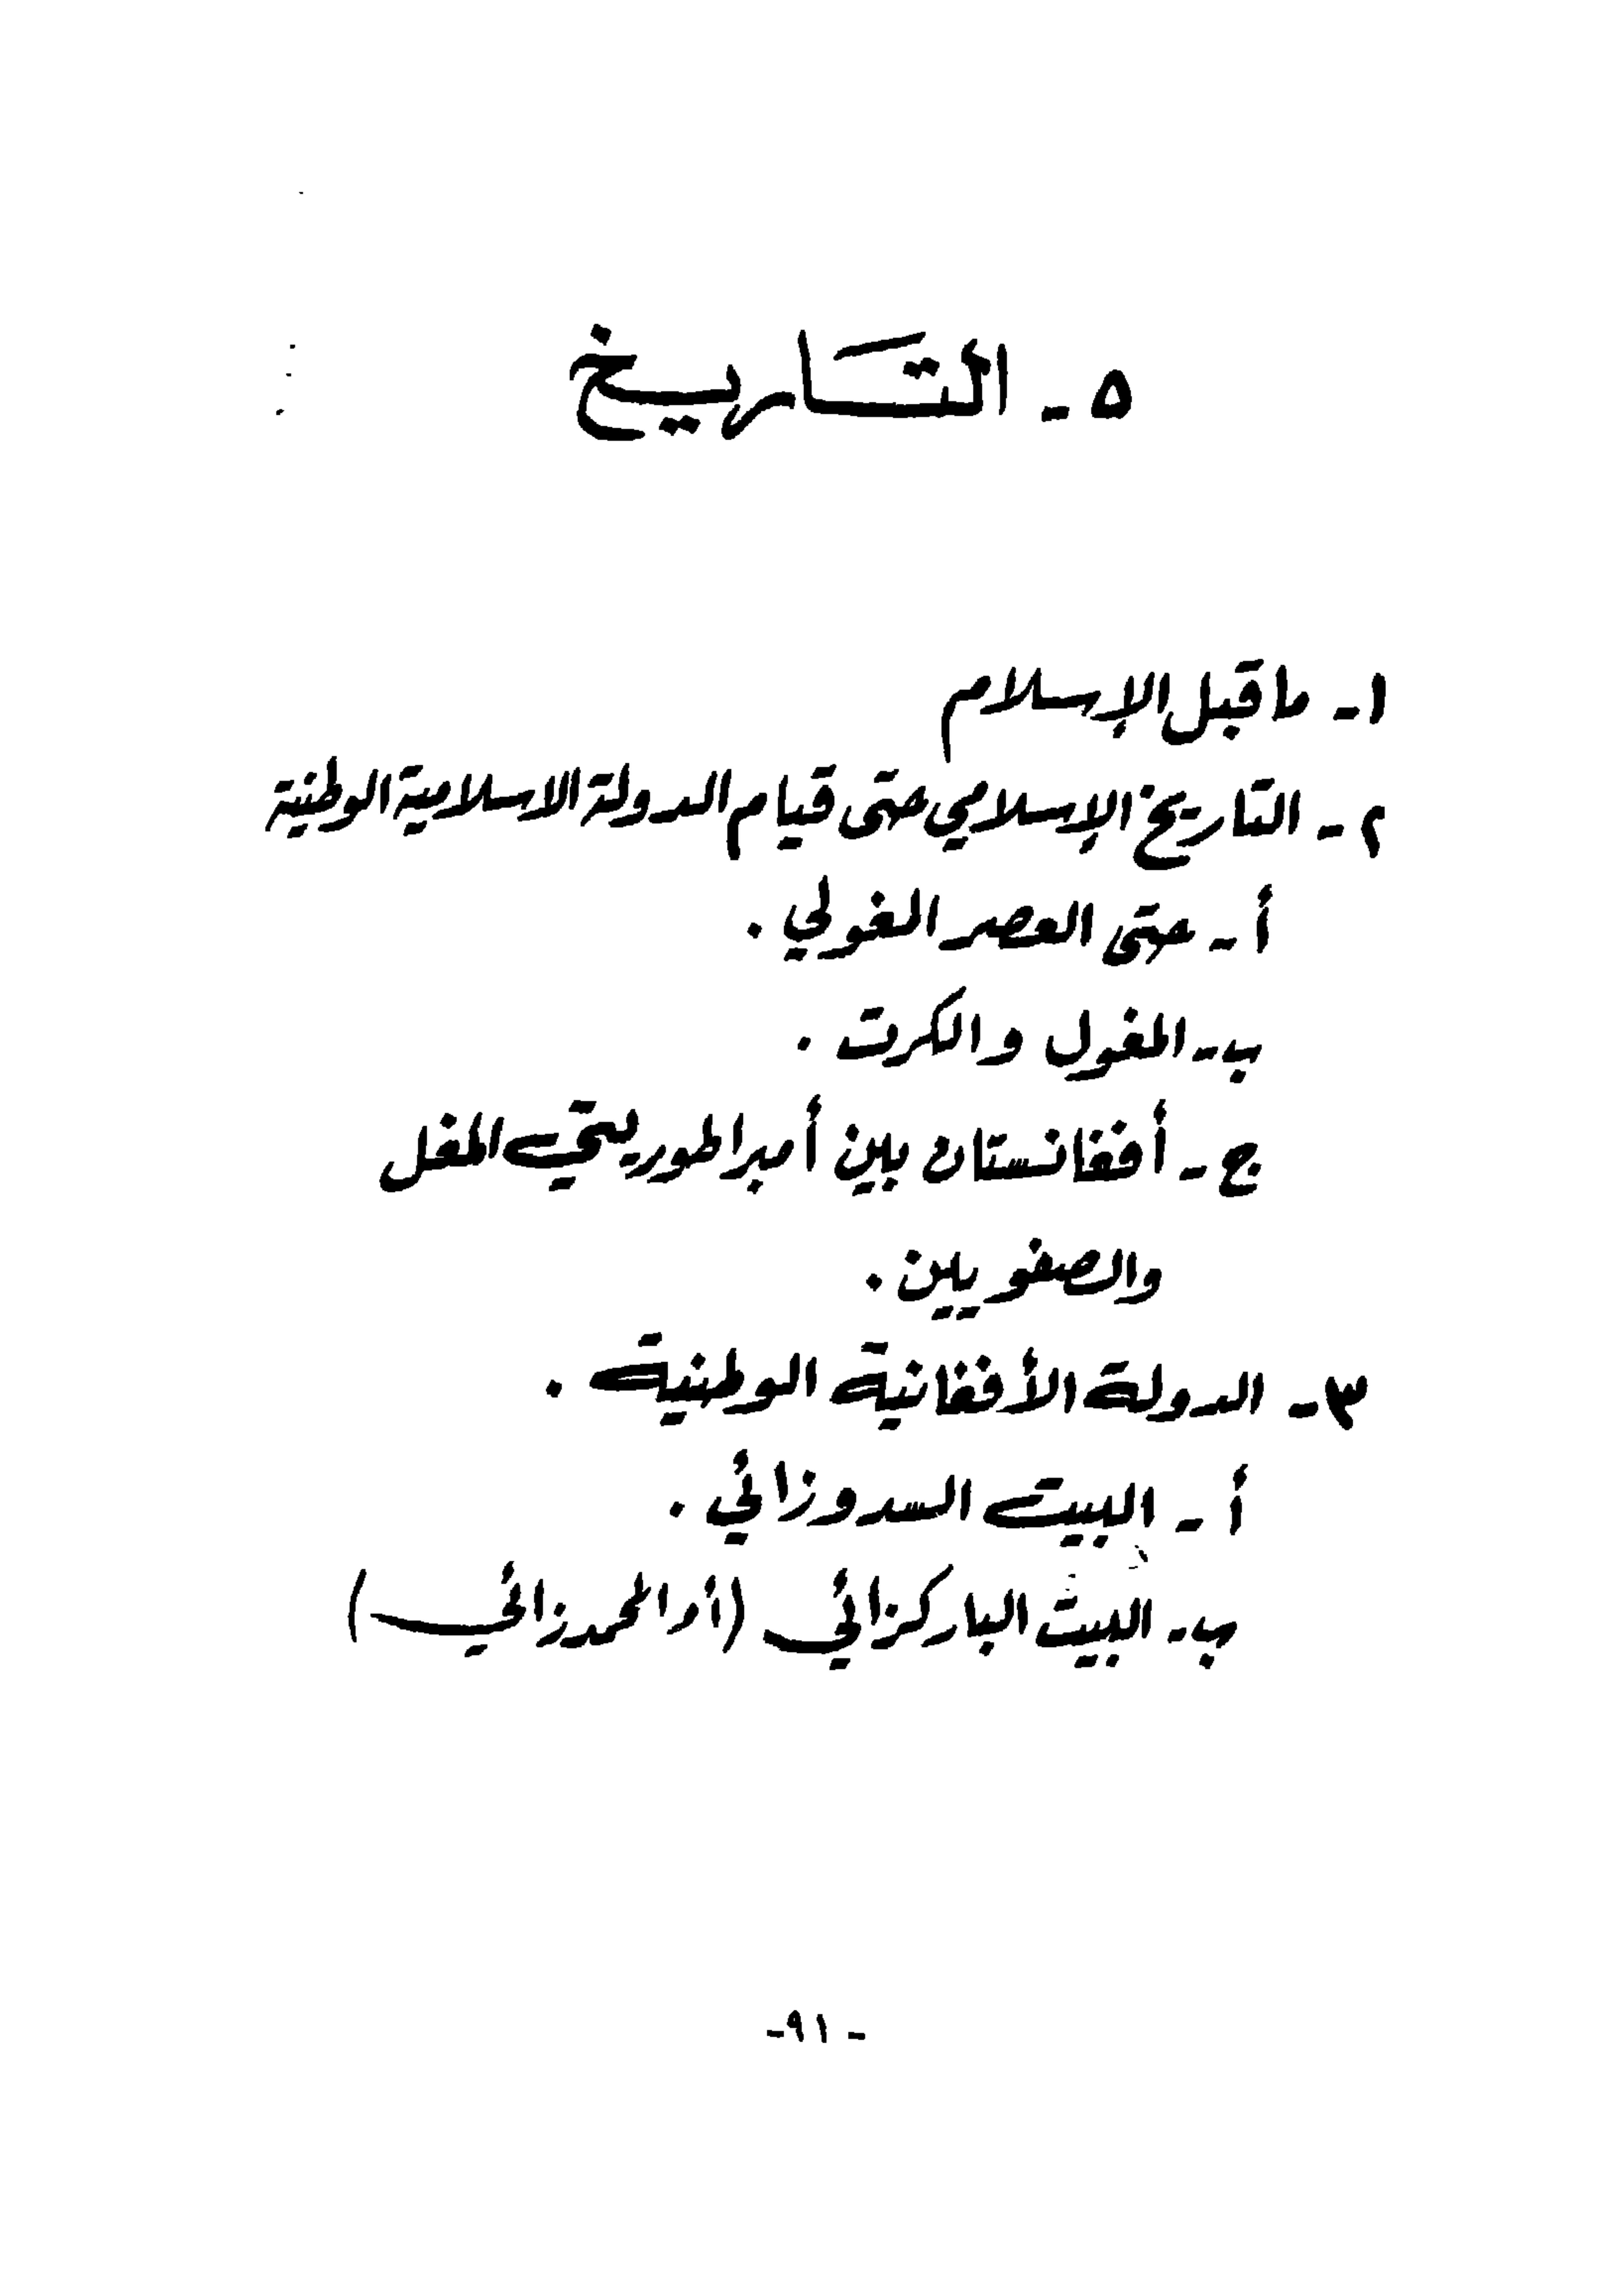 ٥ - التاريخ
١- ما قبل الإسلام
٢ - التاريخ الإسلامي حتى قيام الدولة الاسلامية الوطنية
أ - حتى العصر المغولي .
ب - المغول والكرت .
ج - أفغانستان بين أمبراطوريتي المغل
والصفويين .
٣ - الدولة الأفغانية الوطنية .
أ - البيت السدوزائي .
ب - البيت الباركزائي (أو المحمدزائي)
- ٩١ -